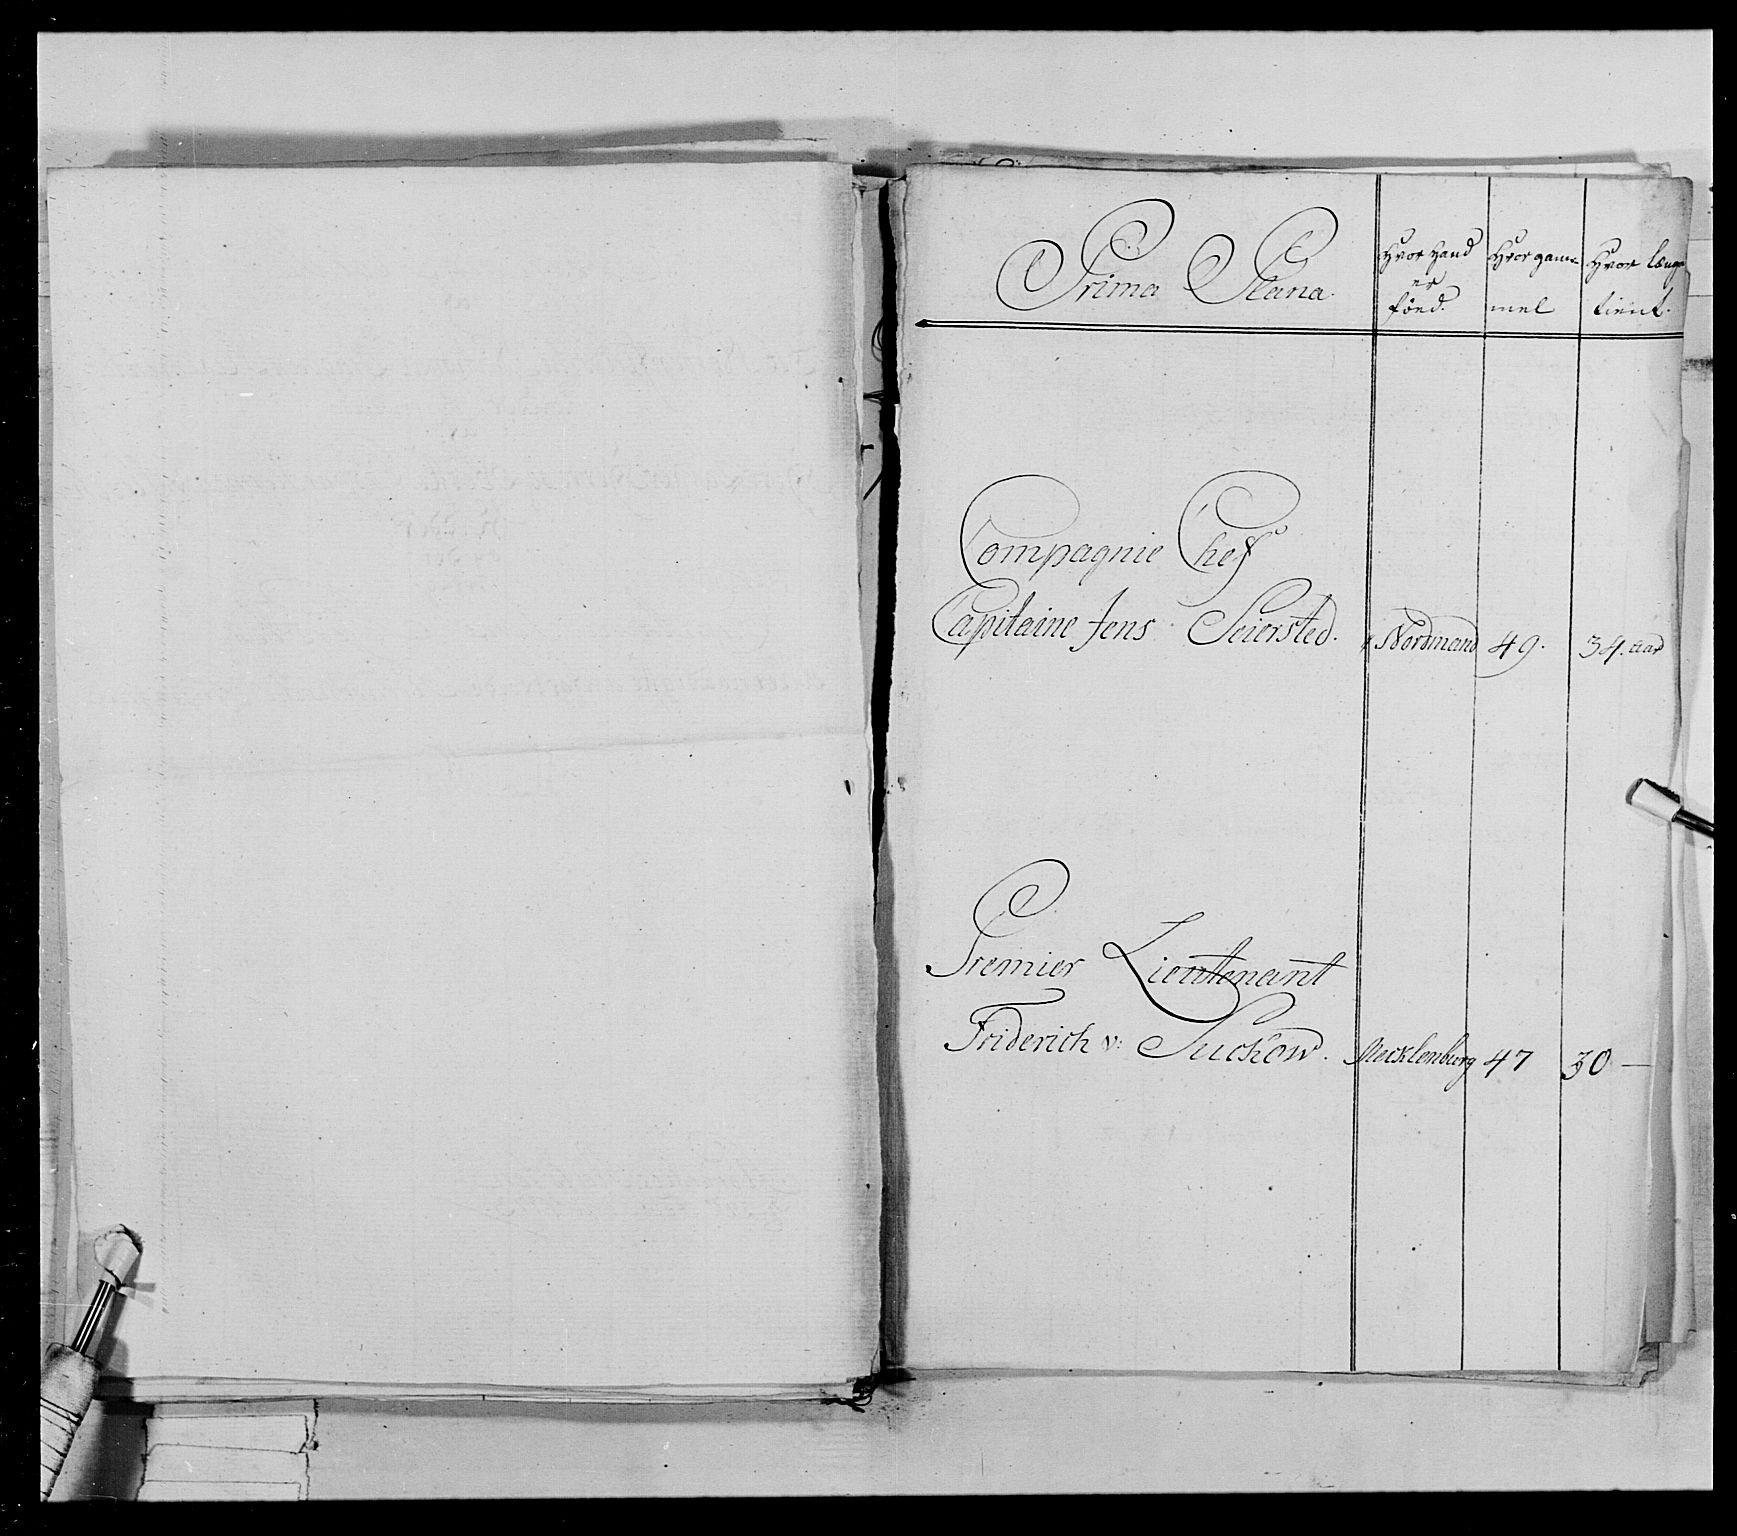 Prima Plana.
Hvor Hand er föed.
Hvor gam- mel
Hvor længe tient.
Compagnie Chef
Capitaine Jens Seiersted. Nordmand 49. 34. aar
Premier Lieutenant
Friderich v: Suckow. Mecklenburg 47 30 —